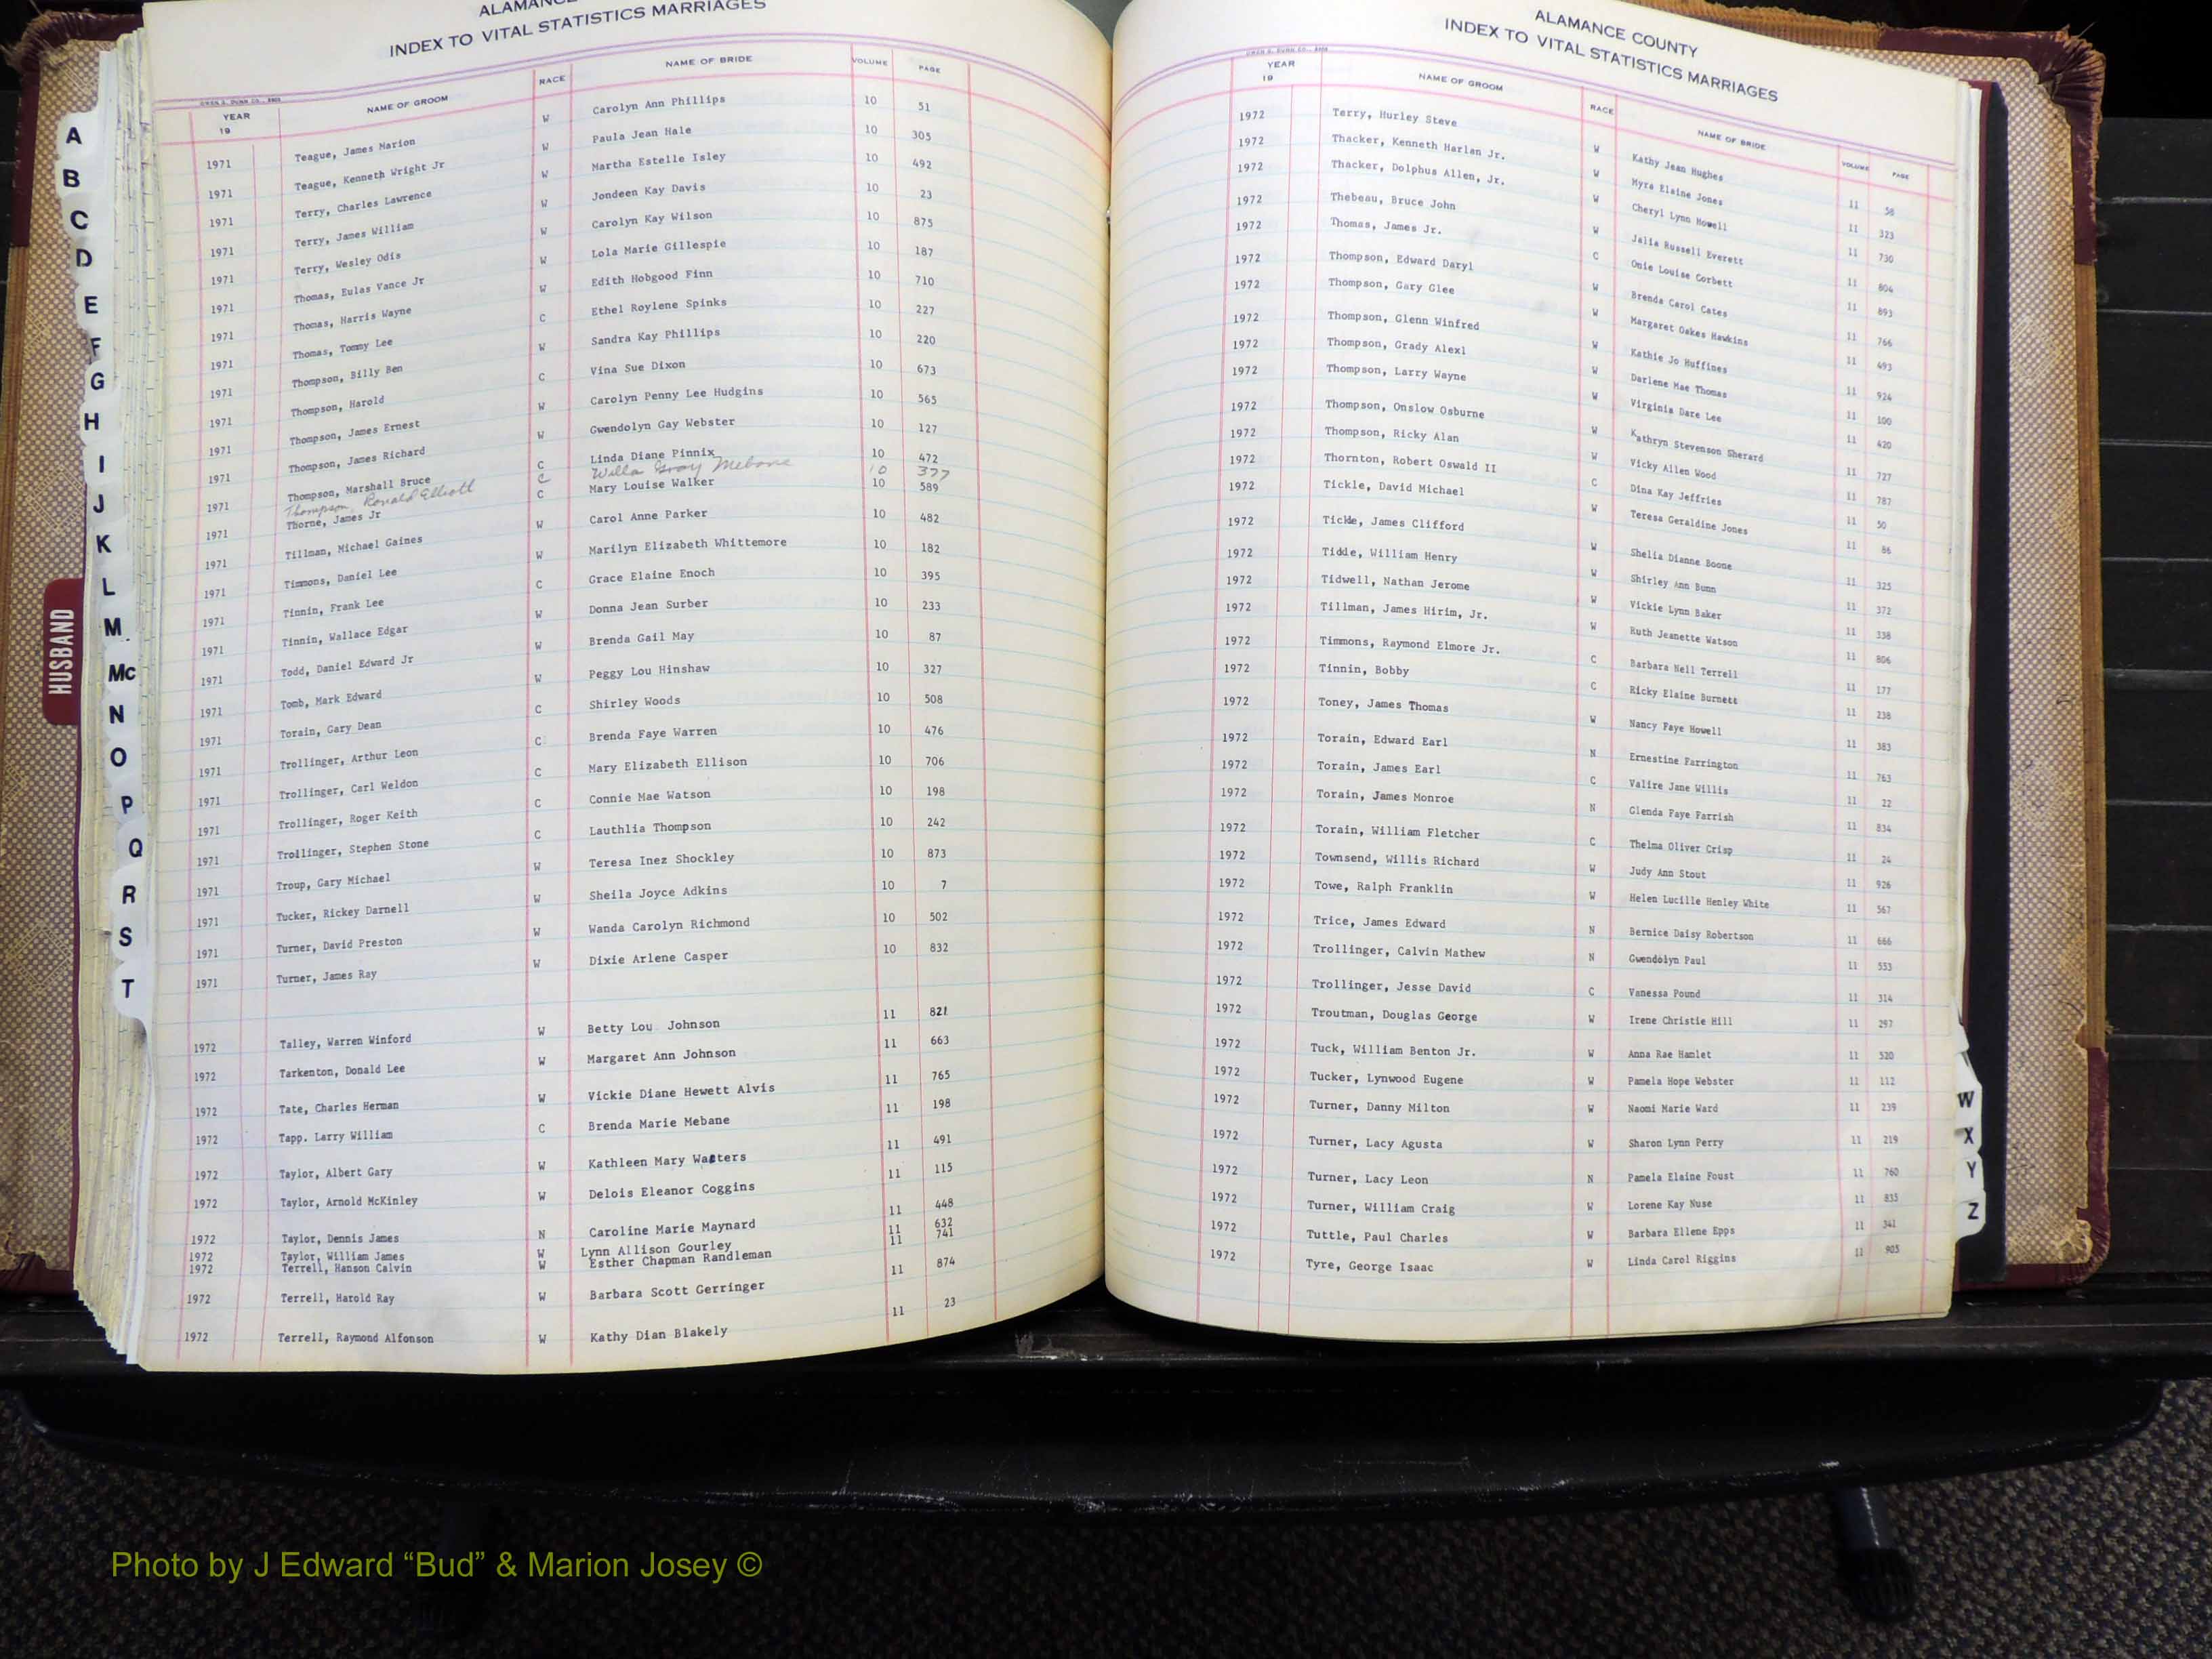 ALAMANCE
INDEX TO VITAL STATISTICS MARRIAGES
OWEN G. DUNN CO.
YEAR 19 NAME OF GROOM RACE NAME OF BRIDE VOLUME PAGE
1971 Teague, James Marion W Carolyn Ann Phillips 10 51
1971 Teague, Kenneth Wright Jr W Paula Jean Hale 10 305
1971 Terry, Charles Lawrence W Martha Estelle Isley 10 492
1971 Terry, James William W Jondeen Kay Davis 10 23
1971 Terry, Wesley Odis W Carolyn Kay Wilson 10 875
1971 Thomas, Eulas Vance Jr W Lola Marie Gillespie 10 187
1971 Thomas, Harris Wayne W Edith Hobgood Finn 10 710
1971 Thomas, Tommy Lee C Ethel Roylene Spinks 10 227
1971 Thompson, Billy Ben W Sandra Kay Phillips 10 220
1971 Thompson, Harold C Vina Sue Dixon 10 673
1971 Thompson, James Ernest W Carolyn Penny Lee Hudgins 10 565
1971 Thompson, James Richard W Gwendolyn Gay Webster 10 127
1971 Thompson, Marshall Bruce C Linda Diane Pinnix 10 472
Thompson, Ronald Elliott C Willa Gray Mebane 10 377
1971 Thorne, James Jr C Mary Louise Walker 10 589
1971 Tillman, Michael Gaines W Carol Anne Parker 10 482
1971 Timmons, Daniel Lee W Marilyn Elizabeth Whittemore 10 182
1971 Tinnin, Frank Lee C Grace Elaine Enoch 10 395
1971 Tinnin, Wallace Edgar W Donna Jean Surber 10 233
1971 Todd, Daniel Edward Jr W Brenda Gail May 10 87
1971 Tomb, Mark Edward W Peggy Lou Hinshaw 10 327
1971 Torain, Gary Dean C Shirley Woods 10 508
1971 Trollinger, Arthur Leon C Brenda Faye Warren 10 476
1971 Trollinger, Carl Weldon C Mary Elizabeth Ellison 10 706
1971 Trollinger, Roger Keith C Connie Mae Watson 10 198
1971 Trollinger, Stephen Stone C Lauthlia Thompson 10 242
1971 Troup, Gary Michael W Teresa Inez Shockley 10 873
1971 Tucker, Rickey Darnell W Sheila Joyce Adkins 10 7
1971 Turner, David Preston W Wanda Carolyn Richmond 10 502
1971 Turner, James Ray W Dixie Arlene Casper 10 832
1972 Talley, Warren Winford W Betty Lou Johnson 11 821
1972 Tarkenton, Donald Lee W Margaret Ann Johnson 11 663
1972 Tate, Charles Herman W Vickie Diane Hewett Alvis 11 765
1972 Tapp. Larry William C Brenda Marie Mebane 11 198
1972 Taylor, Albert Gary W Kathleen Mary Waters 11 491
1972 Taylor, Arnold McKinley W Delois Eleanor Coggins 11 115
1972 Taylor, Dennis James N Caroline Marie Maynard 11 448
1972 Taylor, William James W Lynn Allison Gourley 11 632
1972 Terrell, Hanson Calvin W Esther Chapman Randleman 11 741
1972 Terrell, Harold Ray W Barbara Scott Gerringer 11 874
1972 Terrell, Raymond Alfonson W Kathy Dian Blakely 11 23
A
B
C
D
E
F
G
H
I
J
K
L
M
Mc
N
O
P
Q
R
S
T
HUSBAND
ALAMANCE COUNTY
INDEX TO VITAL STATISTICS MARRIAGES
OWEN G. DUNN CO.
YEAR 19 NAME OF GROOM RACE NAME OF BRIDE VOLUME PAGE
1972 Terry, Hurley Steve W Kathy Jean Hughes 11 58
1972 Thacker, Kenneth Harlan Jr. W Myra Elaine Jones 11 323
1972 Thacker, Dolphus Allen, Jr. W Cheryl Lynn Howell 11 730
1972 Thebeau, Bruce John W Jalia Russell Everett 11 804
1972 Thomas, James Jr. C Onie Louise Corbett 11 893
1972 Thompson, Edward Daryl W Brenda Carol Cates 11 766
1972 Thompson, Gary Glee W Margaret Oakes Hawkins 11 493
1972 Thompson, Glenn Winfred W Kathie Jo Huffines 11 924
1972 Thompson, Grady Alexl W Darlene Mae Thomas 11 100
1972 Thompson, Larry Wayne W Virginia Dare Lee 11 420
1972 Thompson, Onslow Osburne W Kathryn Stevenson Sherard 11 727
1972 Thompson, Ricky Alan W Vicky Allen Wood 11 787
1972 Thornton, Robert Oswald II C Dina Kay Jeffries 11 50
1972 Tickle, David Michael W Teresa Geraldine Jones 11 86
1972 Tickle, James Clifford W Shelia Dianne Boone 11 325
1972 Tidde, William Henry W Shirley Ann Bunn 11 372
1972 Tidwell, Nathan Jerome W Vickie Lynn Baker 11 338
1972 Tillman, James Hirim, Jr. W Ruth Jeanette Watson 11 806
1972 Timmons, Raymond Elmore Jr. C Barbara Nell Terrell 11 177
1972 Tinnin, Bobby C Ricky Elaine Burnett 11 238
1972 Toney, James Thomas W Nancy Faye Howell 11 383
1972 Torain, Edward Earl N Ernestine Farrington 11 763
1972 Torain, James Earl C Valire Jane Willis 11 22
1972 Torain, James Monroe N Glenda Faye Farrish 11 834
1972 Torain, William Fletcher C Thelma Oliver Crisp 11 24
1972 Townsend, Willis Richard W Judy Ann Stout 11 926
1972 Towe, Ralph Franklin W Helen Lucille Henley White 11 567
1972 Trice, James Edward N Bernice Daisy Robertson 11 666
1972 Trollinger, Calvin Mathew N Gwendolyn Paul 11 553
1972 Trollinger, Jesse David C Vanessa Pound 11 314
1972 Troutman, Douglas George W Irene Christie Hill 11 297
1972 Tuck, William Benton Jr. W Anna Rae Hamlet 11 520
1972 Tucker, Lynwood Eugene W Pamela Hope Webster 11 112
1972 Turner, Danny Milton W Naomi Marie Ward 11 239
1972 Turner, Lacy Agusta W Sharon Lynn Perry 11 219
1972 Turner, Lacy Leon N Pamela Elaine Foust 11 760
1972 Turner, William Craig W Lorene Kay Nuse 11 835
1972 Tuttle, Paul Charles W Barbara Ellene Epps 11 341
1972 Tyre, George Isaac W Linda Carol Riggins 11 905
W
X
Y
Z
Photo by J Edward “Bud” & Marion Josey ©